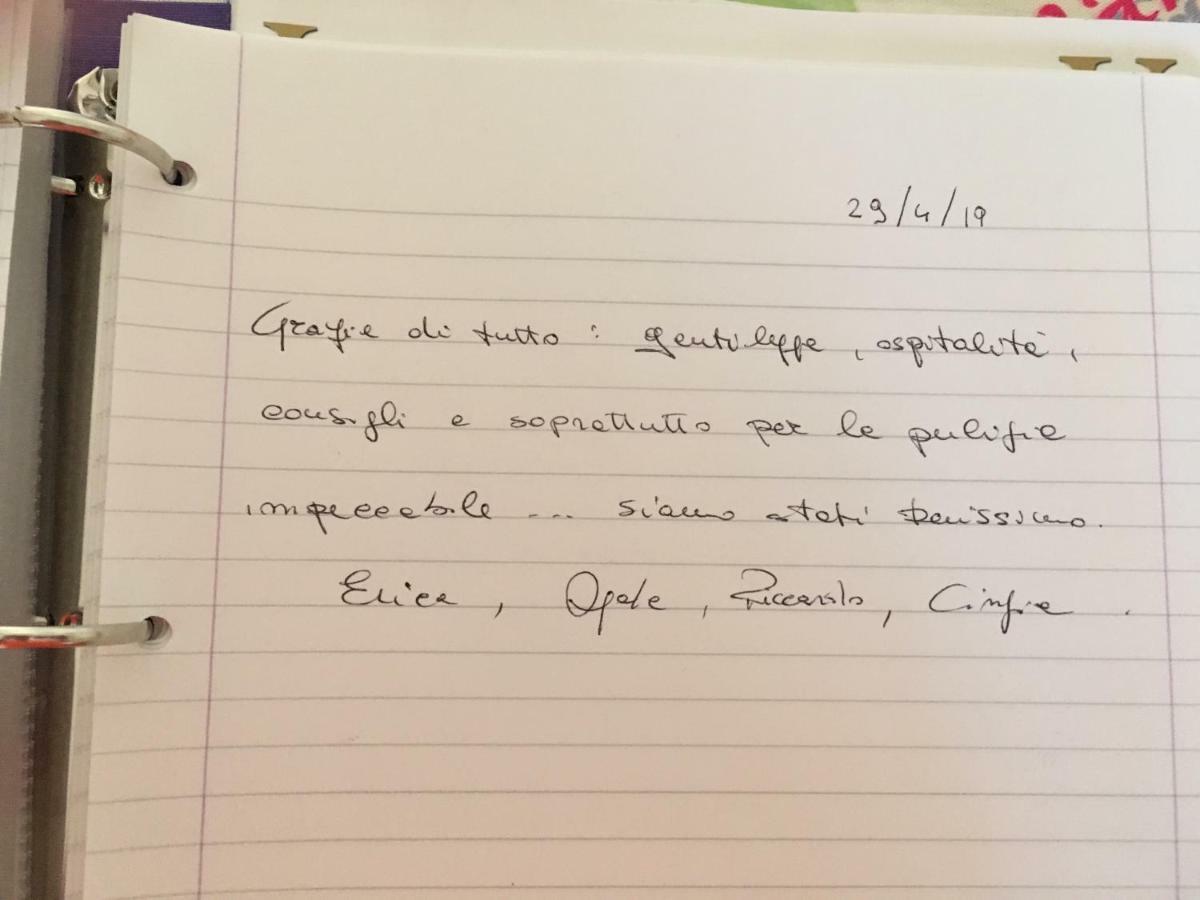 29/4/19
Grazie di tutto : gentilezze, ospitalità,
consigli e soprattutto per la pulizia
impeccabile ... siamo stati benissimo.
Erica, Opale, Riccardo, Cinzia.